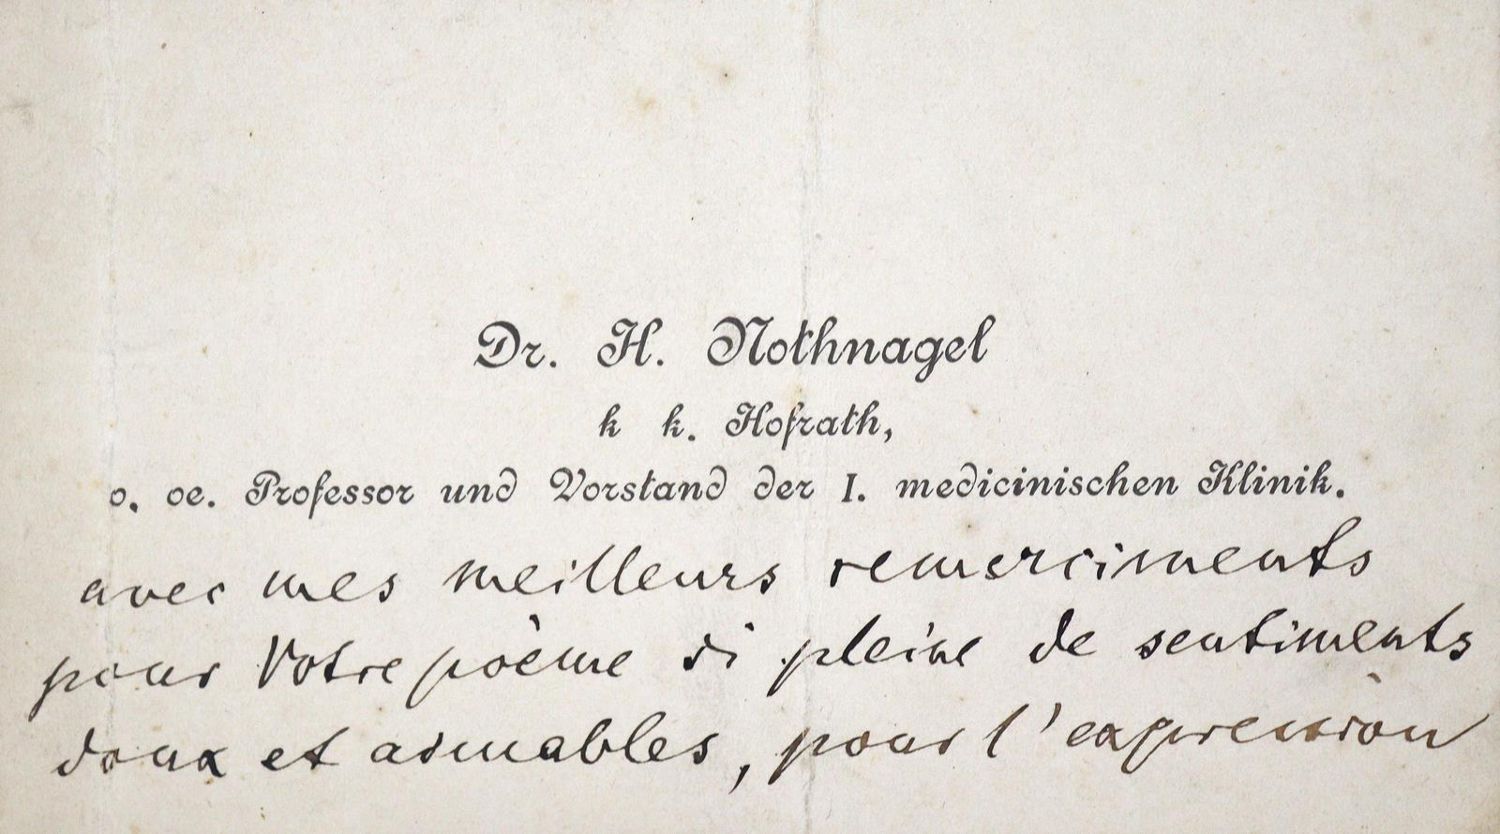 Dr. H. Nothnagel
k k. Hofrath,
o. oe. Professor und Vorstand der I. medicinischen Klinik.
avec mes meilleurs remerciments
pour Votre poème si pleine de sentiments
doux et aimables, pour l'expression